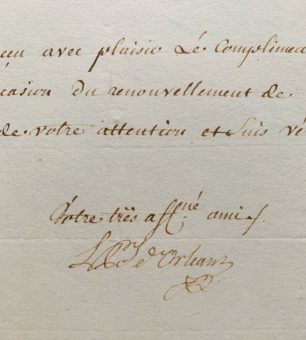 çu avec plaisir Le Complimen
casion du renouvellement de
de votre attention et suis vé
Votre très aff.né ami /.
d'Orleans